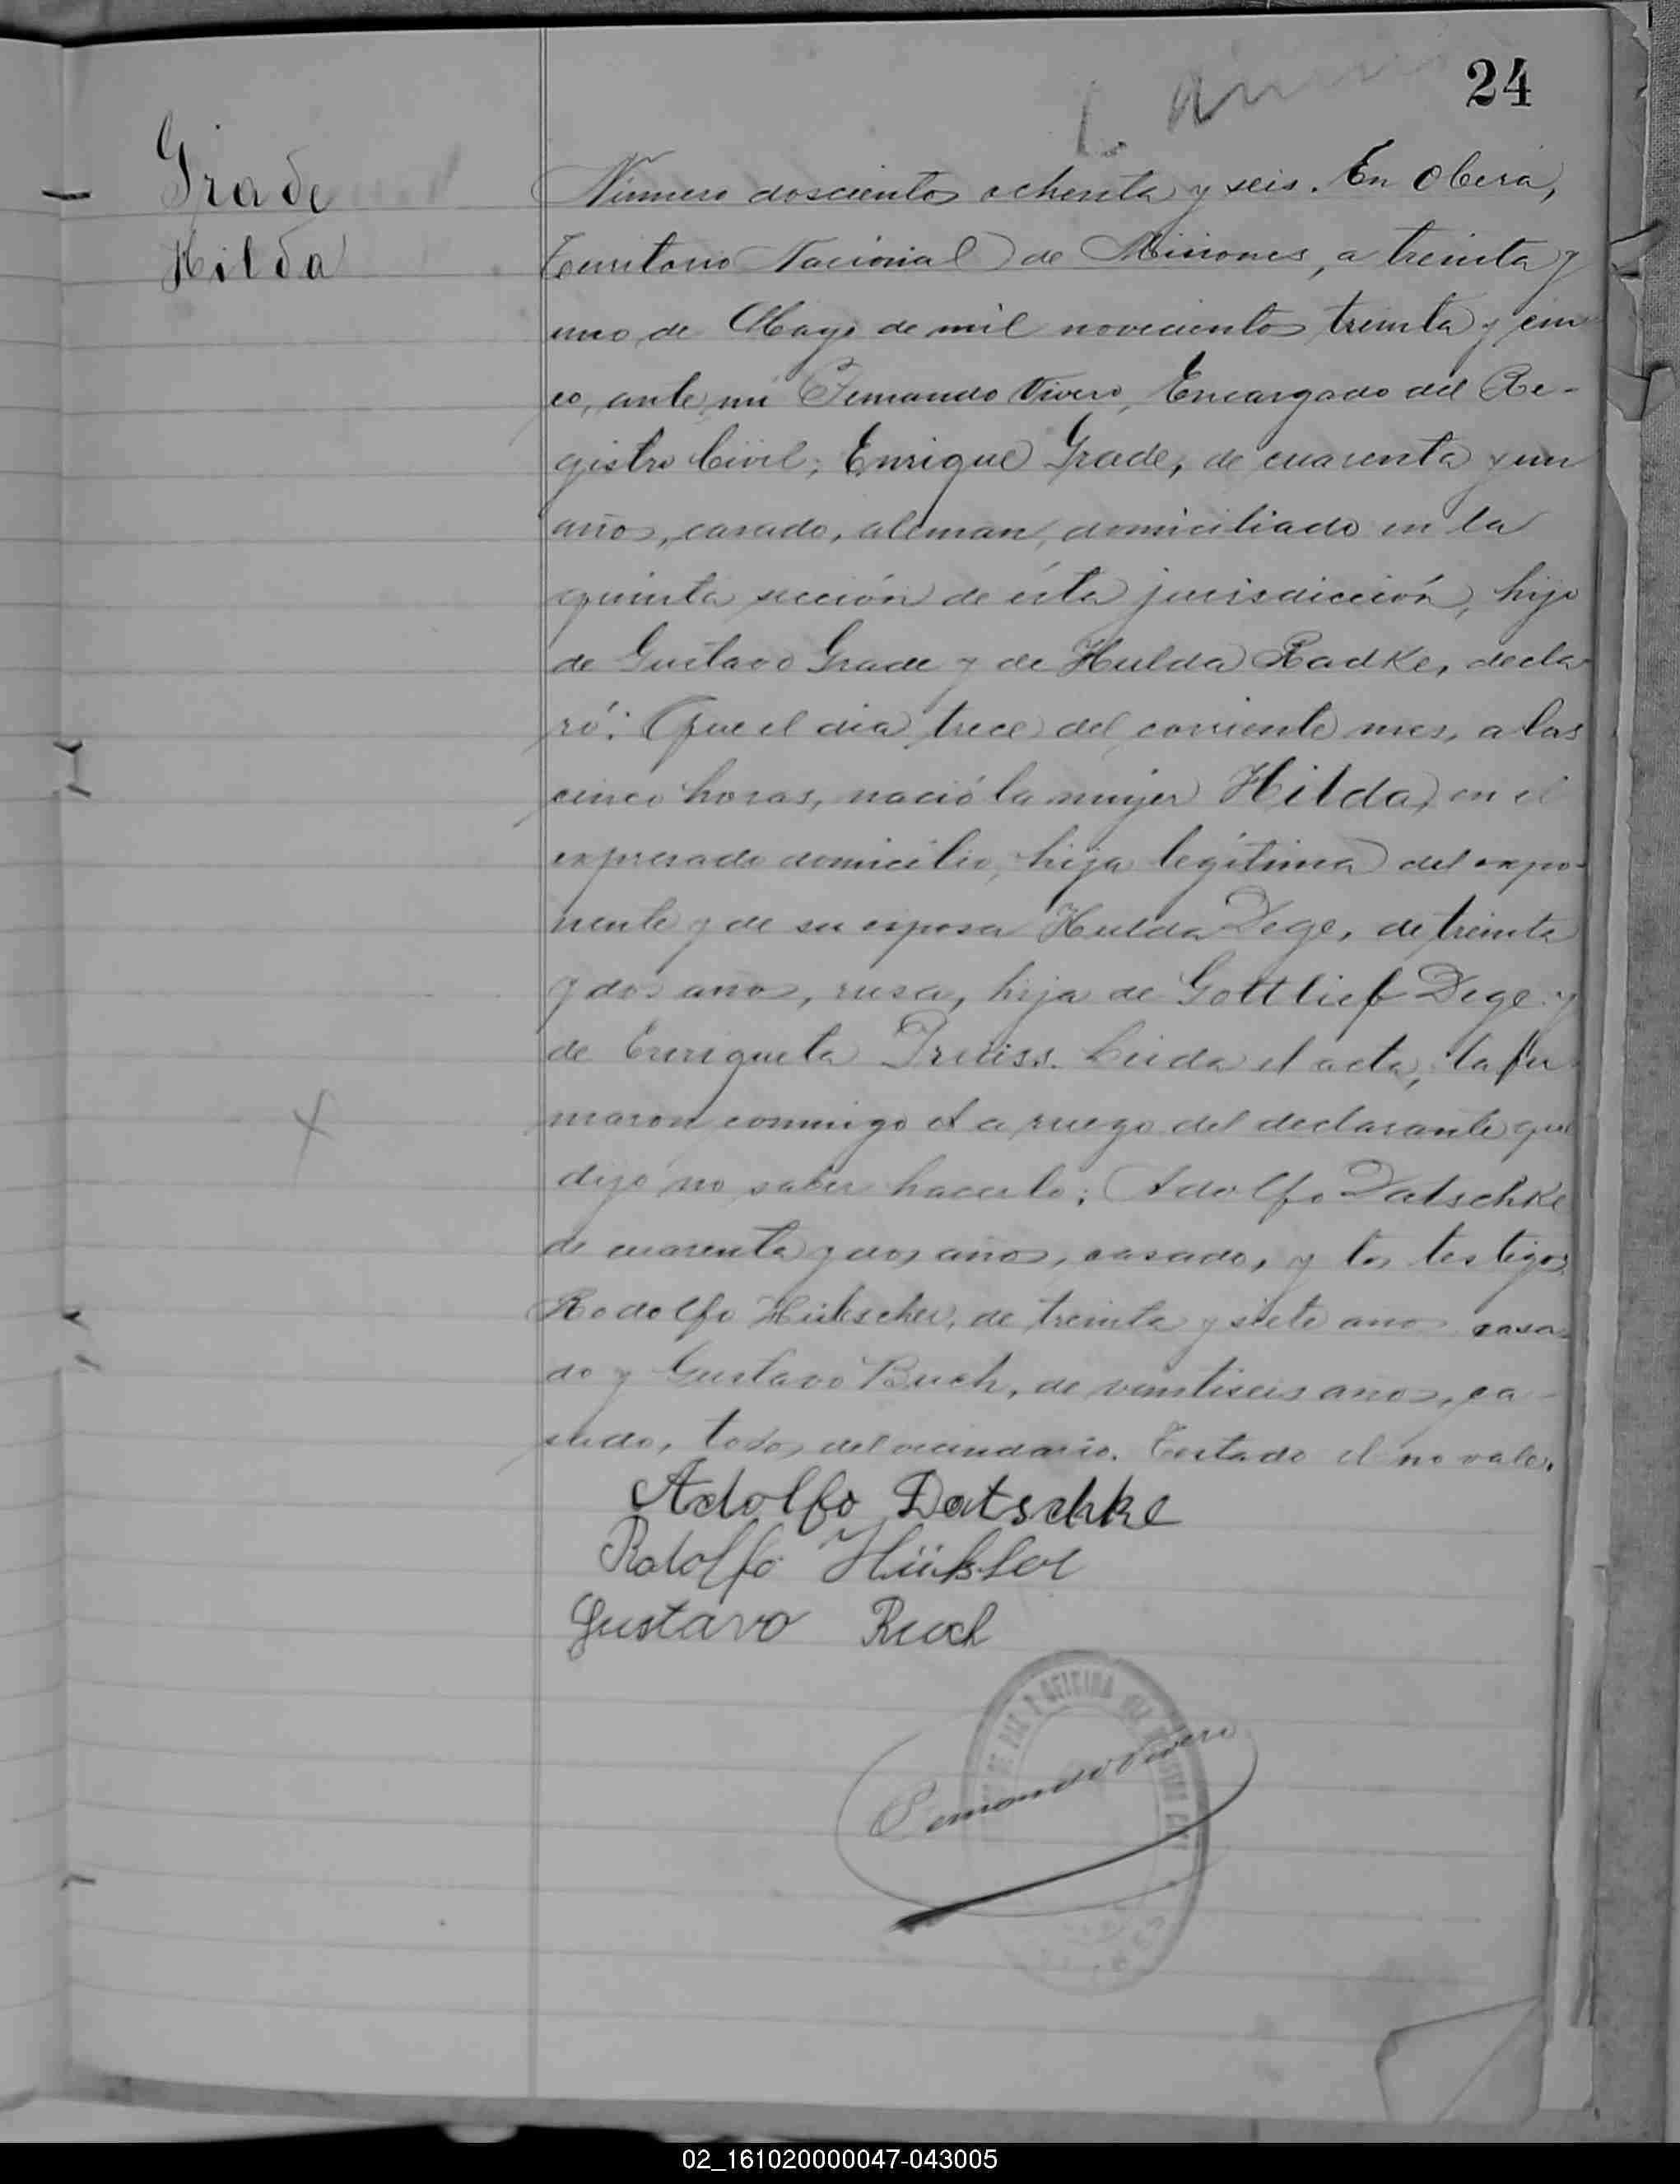 24
Grade
Hilda
Número doscientos ochenta y seis. En Oberá,
Territorio Nacional de Misiones, a treinta y
uno de Mayo de mil novecientos treinta y cin
co, ante mi Fernando Vivero, Encargado del Re-
gistro Civil; Enrique Grade, de cuarenta y un
años, casado, aleman, domiciliado en la
quinta sección de ésta jurisdicción, hijo
de Gustavo Grade y de Hulda Radke, decla-
ró: Que el dia trece del corriente mes, a las
cinco horas, nació la mujer Hilda, en el
expresado domicilio, hija legítima del expo-
nente y de su esposa Hulda Dege, de treinta
y dos años, rusa, hija de Gottlief Dege y
de Enriqueta Preiss. Leida el acta, la fir
maron conmigo el a ruego del declarante que
dijo no saber hacerlo; Adolfo Datschke
de cuarenta y dos años, casado, y los testigos
Rodolfo Hübscher, de treinta y siete años casa-
do y Gustavo Ruch, de veintiseis años, ca-
sado, todos del vecindario. Testado el no vale.
Adolfo Datschke
Rodolfo
Gustavo Ruch
Fernando Vivero
02_161020000047-043005